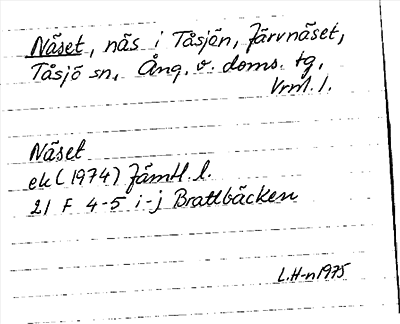 Näset, näs i Tåsjön, Järvnäset,
Tåsjö sn, Ång. v. doms. tg,
Vrml. l.
Näset
ek (1974) Jämtl. l.
21 F 4-5 i-j Brattbäcken
L.H-n 1975